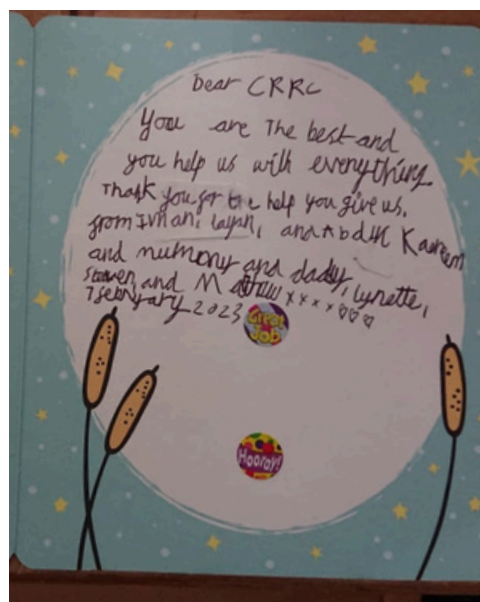 Dear CRRC
You are The best and
you help us with everything.
Thank you for the help you give us.
from Iman, layan, and Abdul Kareem
and mummy and dady, lynette,
steven, and Mathew xxxx♡♡♡
7 february 2023
Great Job
Hooray!